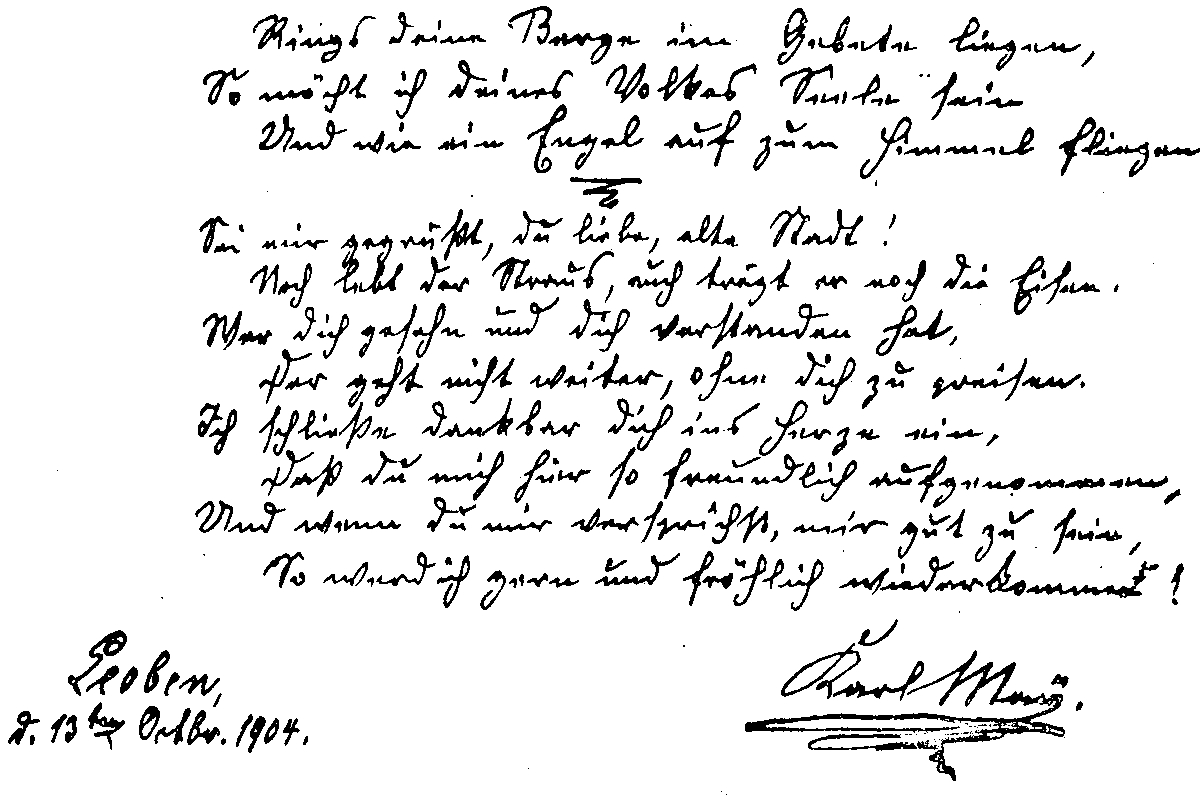 Rings deine Berge im Gebete liegen,
So möcht ich deines Volkes Seele sein
Und wie ein Engel auf zum Himmel fliegen
Sei mir gegrüßt, du liebe, alte Stadt!
Noch lebt der Straus, auch trägt er noch die Eisen.
Wer dich gesehn und dich verstanden hat,
Der geht nicht weiter, ohne dich zu preisen.
Ich schließe dankbar dich ins Herze ein,
Daß du mich hier so freundlich aufgenommen,
Und wenn du mir versprichst, mir gut zu sein,
So werd ich gern und fröhlich wiederkommen!
Leoben,
d. 13ten Octbr. 1904.
Karl May.